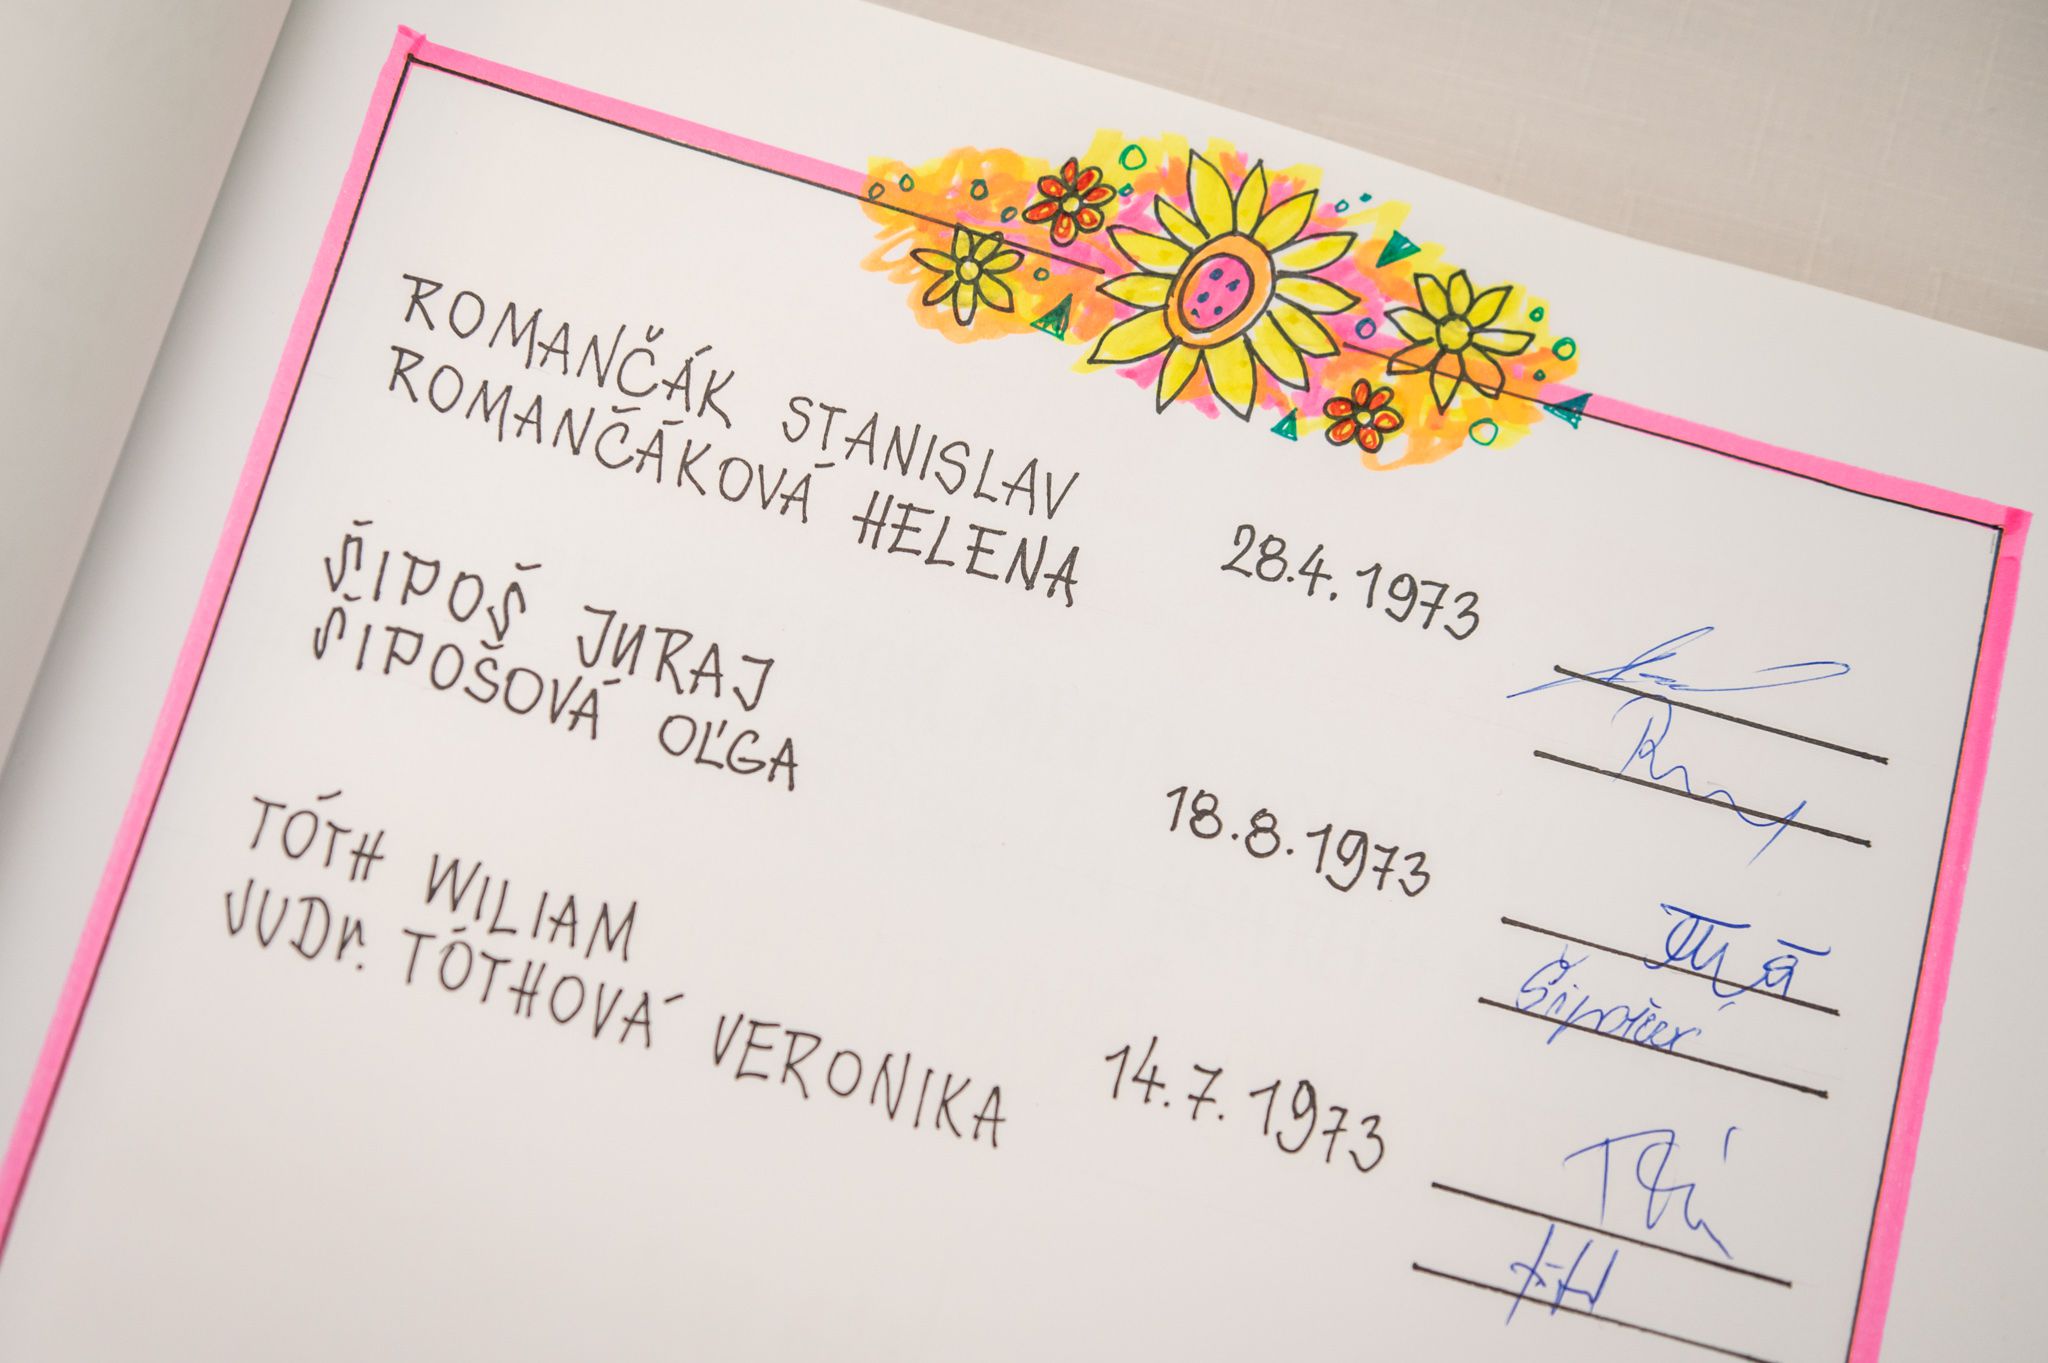 ROMANČÁK STANISLAV
ROMANČÁKOVÁ HELENA
28.4.1973
ŠIPOŠ JURAJ
ŠIPOŠOVÁ OĽGA
18.8.1973
TÓTH WILIAM
JUDr. TÓTHOVÁ VERONIKA
14.7.1973